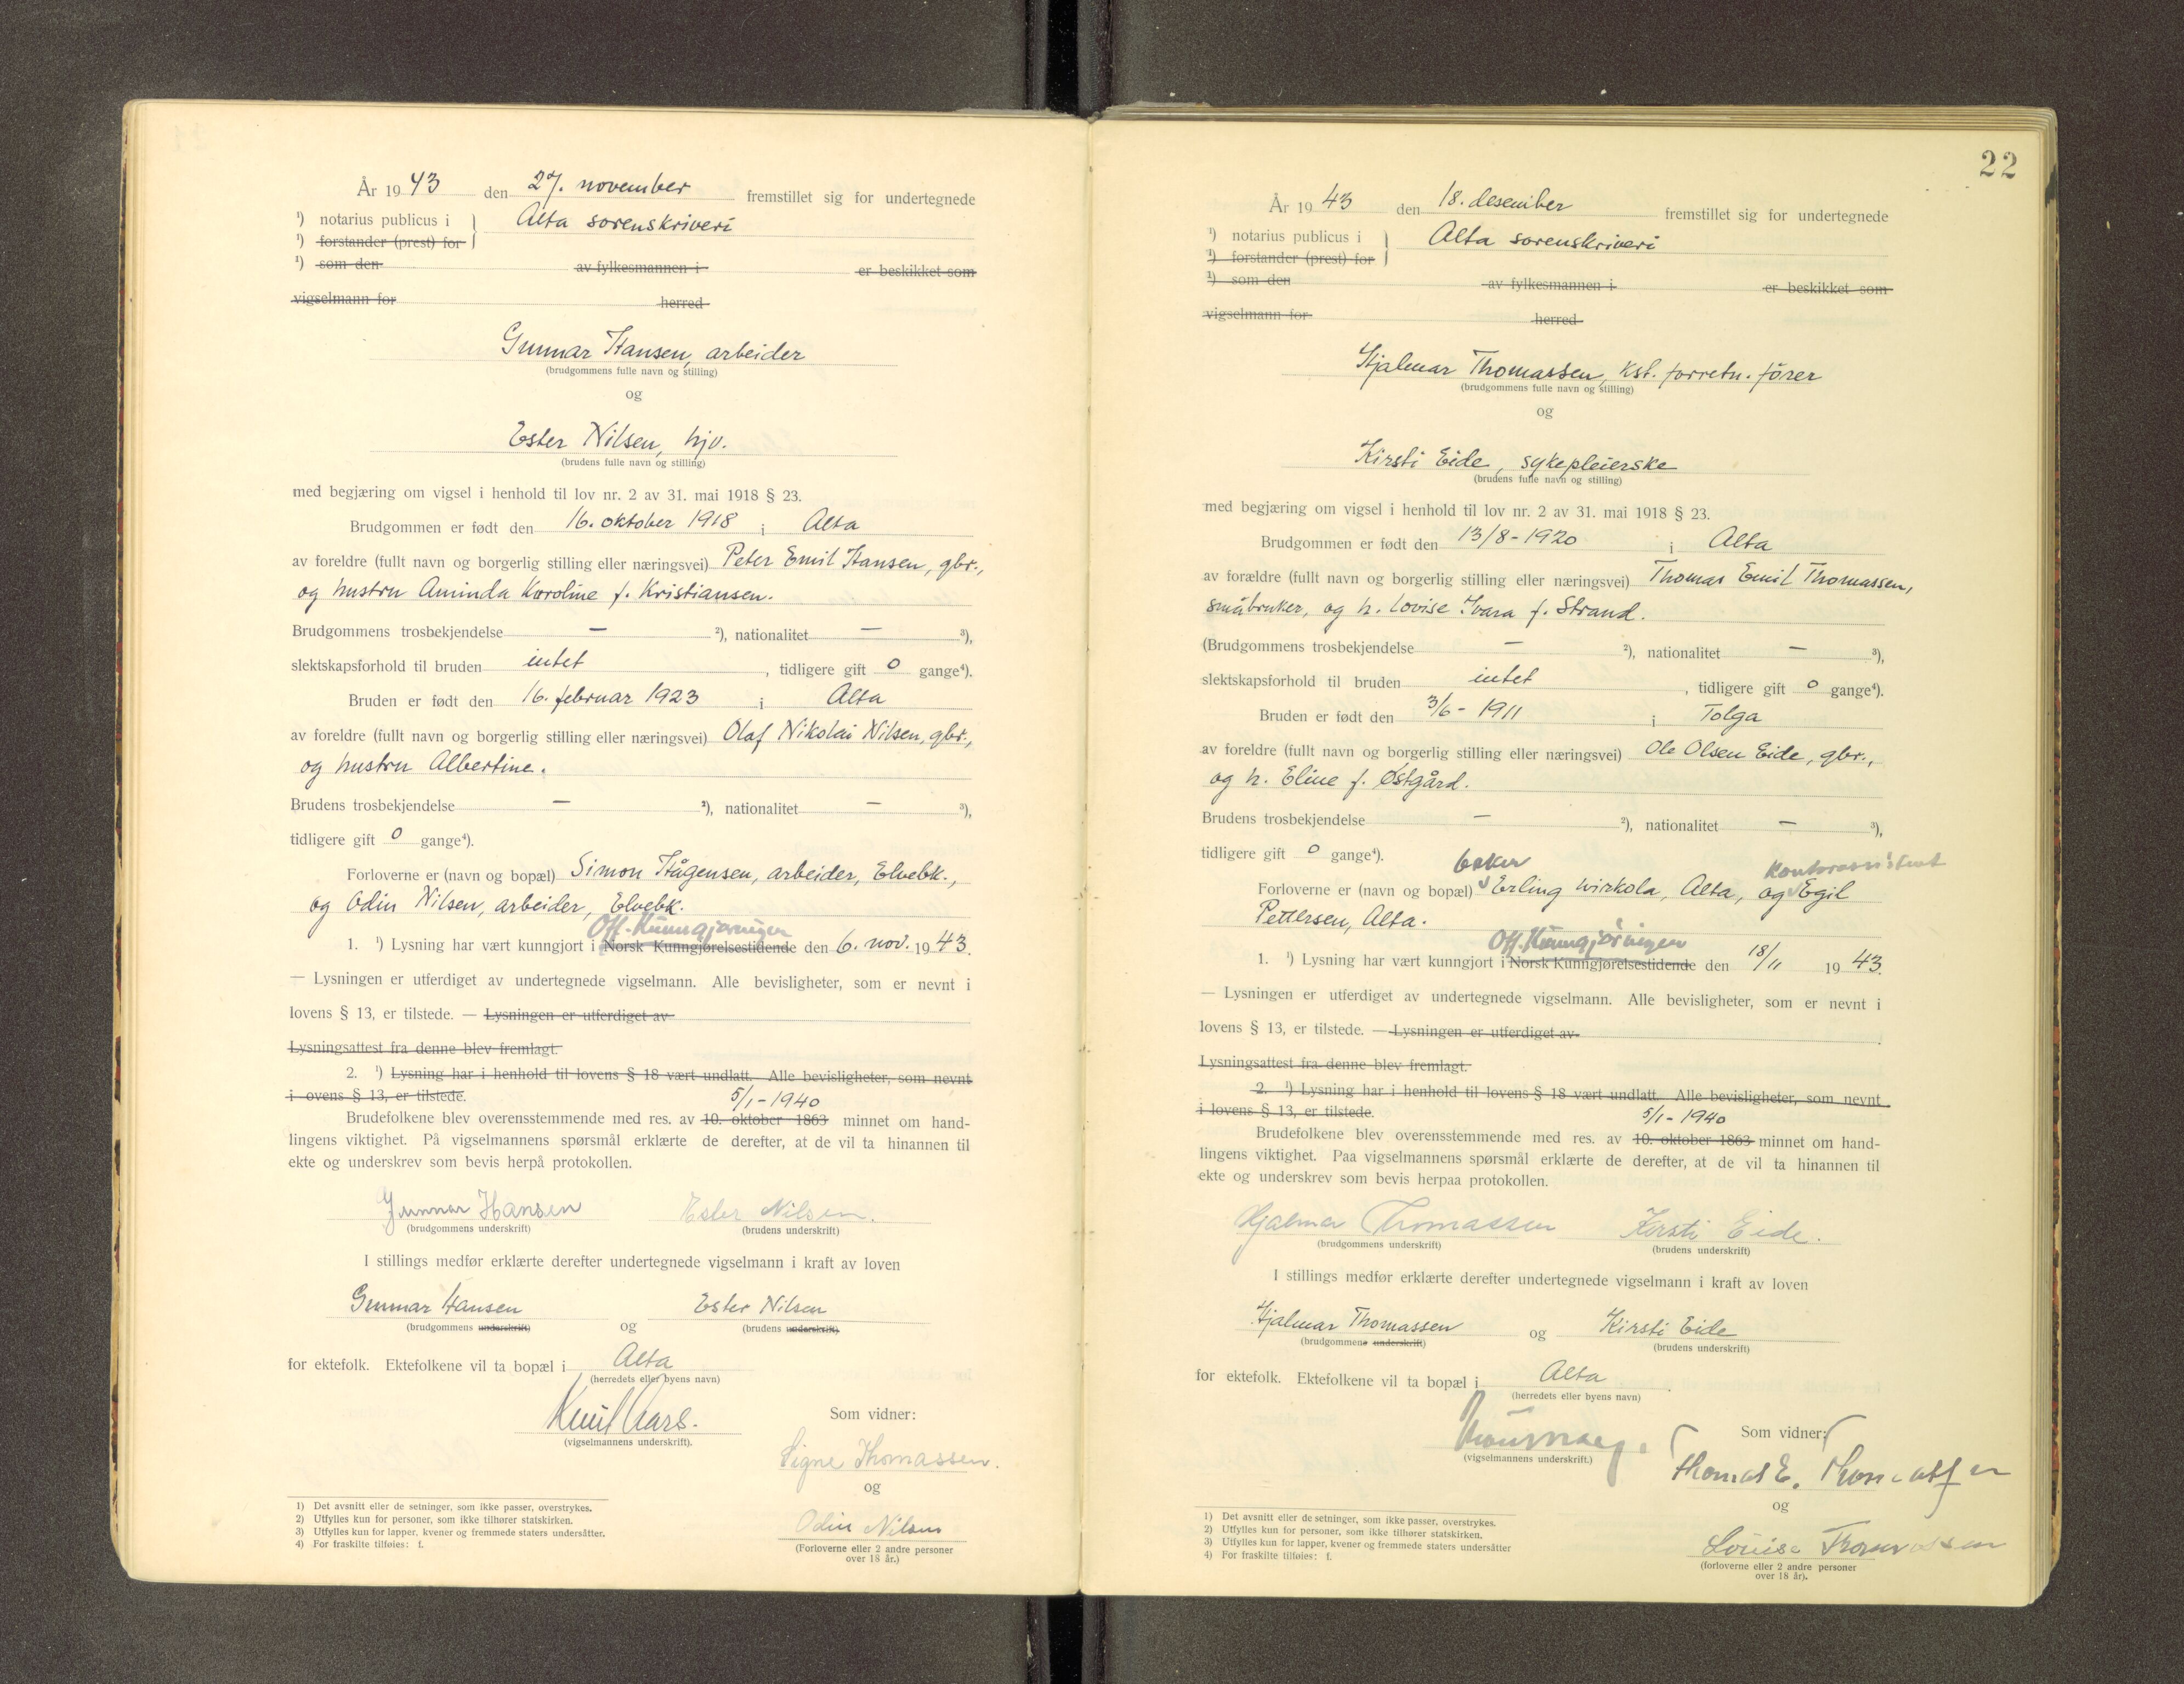 År 1943 den 27. november fremstillet sig for undertegnede
¹) notarius publicus i } Alta sorenskriveri
¹) forstander (prest) for
¹) som den av fylkesmannen i er beskikket som
vigselmann for herred
Gunnar Hansen, arbeider
(brudgommens fulle navn og stilling)
og
Ester Nilsen, hjv.
(brudens fulle navn og stilling)
med begjæring om vigsel i henhold til lov nr. 2 av 31. mai 1918 § 23.
Brudgommen er født den 16. oktober 1918 i Alta
av foreldre (fullt navn og borgerlig stilling eller næringsvei) Peter Emil Hansen, gbr.,
og hustru Aminda Karoline f. Kristiansen.
Brudgommens trosbekjendelse — ²), nationalitet — ³),
slektskapsforhold til bruden intet, tidligere gift 0 gange⁴).
Bruden er født den 16. februar 1923 i Alta
av foreldre (fullt navn og borgerlig stilling eller næringsvei) Olaf Nikolai Nilsen, gbr.,
og hustru Albertine.
Brudens trosbekjendelse — ²), nationalitet — ³),
tidligere gift 0 gange⁴).
Forloverne er (navn og bopæl) Simon Hågensen, arbeider, Elvebk.,
og Odin Nilsen, arbeider, Elvebk.
Off. Kunngjøringer
1. ¹) Lysning har vært kunngjort i Norsk Kunngjørelsestidende den 6. nov. 1943.
— Lysningen er utferdiget av undertegnede vigselmann. Alle bevisligheter, som er nevnt i
lovens § 13, er tilstede. — Lysningen er utferdiget av
Lysningsattest fra denne blev fremlagt.
2. ¹) Lysning har i henhold til lovens § 18 vært undlatt. Alle bevisligheter, som nevnt
i ovens § 13, er tilstede.
5/1-1940
Brudefolkene blev overensstemmende med res. av 10. oktober 1863 minnet om hand-
lingens viktighet. På vigselmannens spørsmål erklærte de derefter, at de vil ta hinannen til
ekte og underskrev som bevis herpå protokollen.
Gunnar Hansen Ester Nilsen.
(brudgommens underskrift) (brudens underskrift)
I stillings medfør erklærte derefter undertegnede vigselmann i kraft av loven
Gunnar Hansen og Ester Nilsen
(brudgommens underskrift) (brudens underskrift)
for ektefolk. Ektefolkene vil ta bopæl i Alta
(herredets eller byens navn)
Som vidner:
(vigselmannens underskrift).
Signe Thomassen.
og
Odin Nilsen
(Forloverne eller 2 andre personer
over 18 år.)
1) Det avsnitt eller de setninger, som ikke passer, overstrykes.
2) Utfylles kun for personer, som ikke tilhører statskirken.
3) Utfylles kun for lapper, kvener og fremmede staters undersåtter.
4) For fraskilte tilføies: f.
22
År 1943 den 18. desember fremstillet sig for undertegnede
¹) notarius publicus i } Alta sorenskriveri
¹) forstander (prest) for
¹) som den av fylkesmannen i er beskikket som
vigselmann for herred
Hjalmar Thomassen, kst. forretn. fører
(brudgommens fulle navn og stilling)
og
Kirsti Eide, sykepleierske
(brudens fulle navn og stilling)
med begjæring om vigsel i henhold til lov nr. 2 av 31. mai 1918 § 23.
Brudgommen er født den 13/8-1920 i Alta
av forældre (fullt navn og borgerlig stilling eller næringsvei) Thomas Emil Thomassen,
småbruker, og h. Lovise Ivara f. Strand.
(Brudgommens trosbekjendelse — ²), nationalitet — ³),
slektskapsforhold til bruden intet, tidligere gift 0 gange⁴).
Bruden er født den 3/6-1911 i Tolga
av foreldre (fullt navn og borgerlig stilling eller næringsvei) Ole Olsen Eide, gbr.,
og h. Eline f. Østgård.
Brudens trosbekjendelse — ²), nationalitet — ³),
tidligere gift 0 gange⁴).
baker kontorassistent
Forloverne er (navn og bopæl) Erling Wirkola, Alta, og Egil
Pettersen, Alta.
Off. Kunngjøringer
1. ¹) Lysning har vært kunngjort i Norsk Kunngjørelsestidende den 18/11 1943.
— Lysningen er utferdiget av undertegnede vigselmann. Alle bevisligheter, som er nevnt i
lovens § 13, er tilstede. — Lysningen er utferdiget av
Lysningsattest fra denne blev fremlagt.
2. ¹) Lysning har i henhold til lovens § 18 vært undlatt. Alle bevisligheter, som nevnt
i lovens § 13, er tilstede.
5/1-1940
Brudefolkene blev overensstemmende med res. av 10. oktober 1863 minnet om hand-
lingens viktighet. Paa vigselmannens spørsmål erklærte de derefter, at de vil ta hinannen til
ekte og underskrev som bevis herpaa protokollen.
Hjalmar Thomassen Kirsti Eide.
(brudgommens underskrift) (brudens underskrift)
I stillings medfør erklærte derefter undertegnede vigselmann i kraft av loven
Hjalmar Thomassen og Kirsti Eide
(brudgommens underskrift) (brudens underskrift)
for ektefolk. Ektefolkene vil ta bopæl i Alta
(herredets eller byens navn)
Som vidner:
(vigselmannens underskrift.)
Thomas E. Thomassen
og
Lovise Thomassen
(forloverne eller 2 andre personer
over 18 år).
1) Det avsnitt eller de setninger, som ikke passer, overstrykes.
2) Utfylles kun for personer, som ikke tilhører statskirken.
3) Utfylles kun for lapper, kvener og fremmede staters undersåtter
4) For fraskilte tilføies: f.